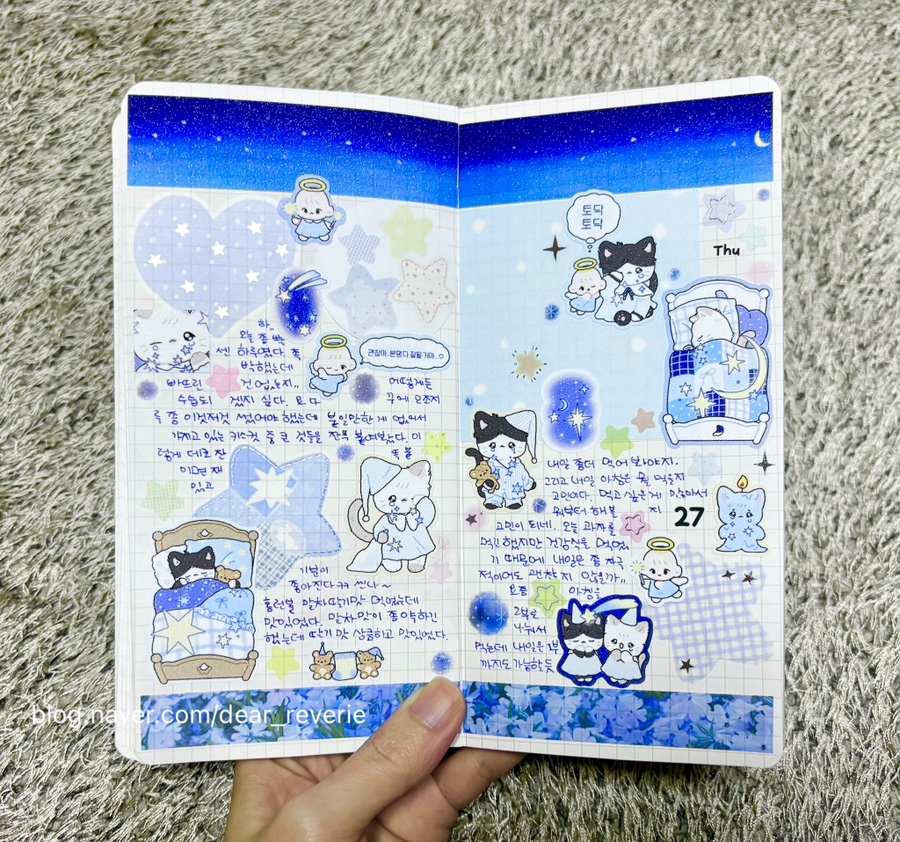 하..
오늘 좀 빡
센 하루였다. 좀
빡했는데
바쁘린 건 없는지..
수습되겠지 싶다. 요다
어떻게든
꾸에 오조지
룩 좀 이것저것 썼어야 했는데 붙일만한 게 없어서
가지고 있는 키스컷 중 큰 것들을 잔뜩 붙여놨다. 이
렇게 데코 잔뜩 붙
이면 재
있고
괜찮아, 본댕다 잘될거야..
기분이
좋아진다ㅋㅋ 씬나~
말차딸기맛 먹었는데
맛있었다. 말차맛이 좀 약하긴
했는데 딸기 맛 상큼하고 맛있었다.
토닥
토닥
Thu
내일 좀더 먹어봐야지.
그리고 내일 아침은 뭘 먹을지
고민이다. 먹고 싶은게 많아서
뭐부터 해볼지
고민이 되네. 오늘 과자를
먹긴 했지만 건강식을 먹었
기 때문에 내일은 좀 자극
적이어도 괜찮지 않을까..
요즘 아침을
2부로
나눠서
먹는데 내일은 3부
까지도 가능할듯
27
blog.naver.com/dear_reverie